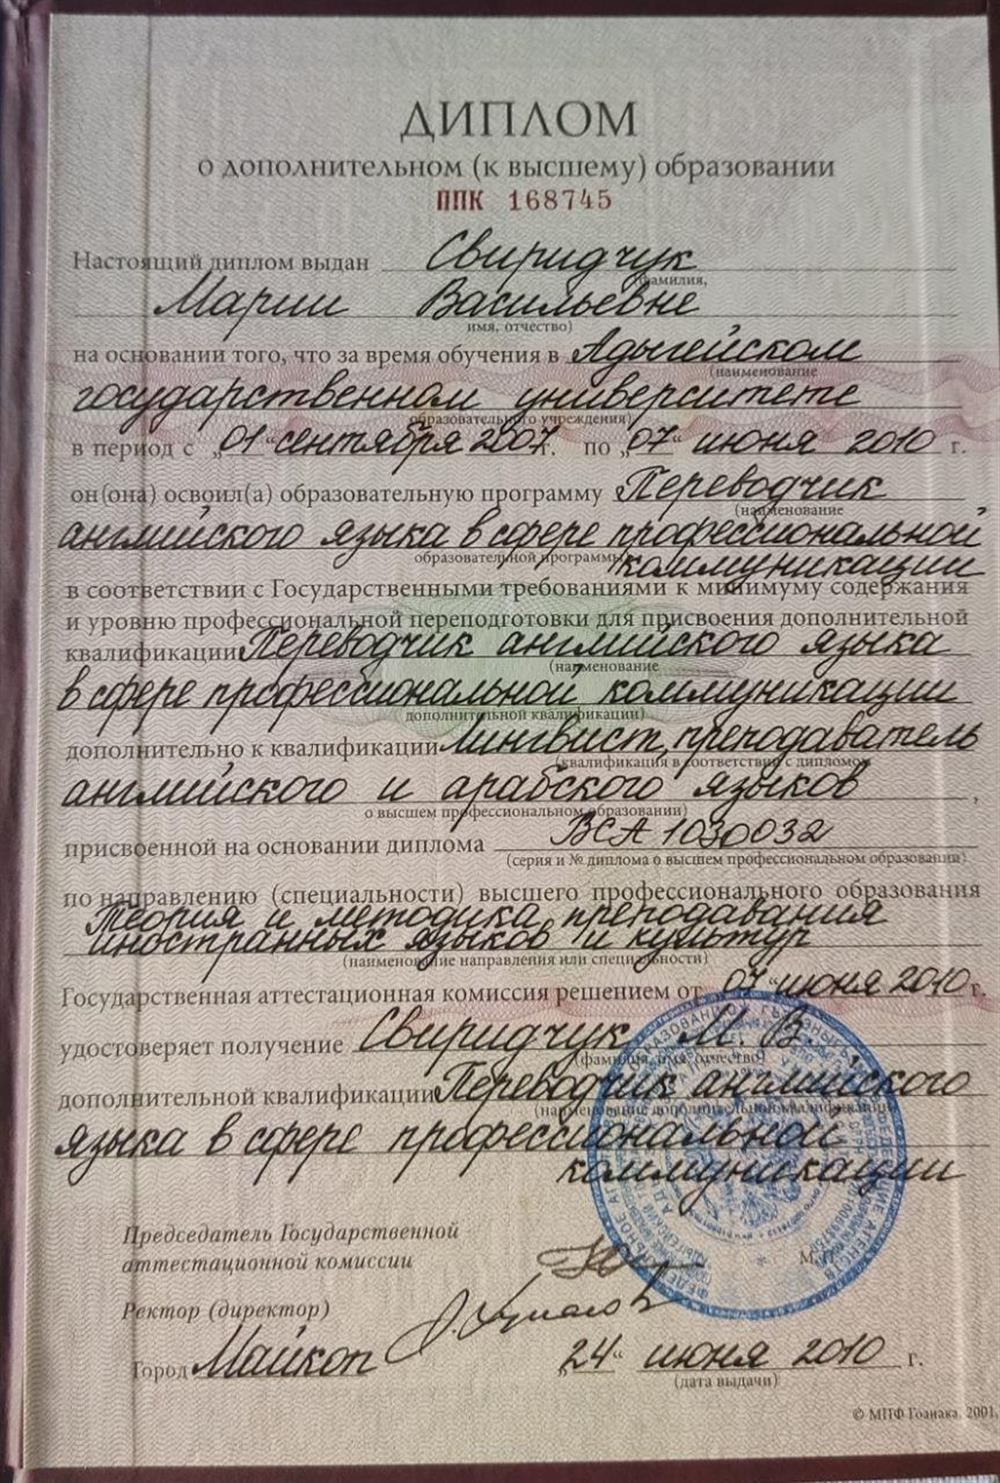 ДИПЛОМ
о дополнительном (к высшему) образовании
ППК 168745
Настоящий диплом выдан Свиридчук
(фамилия,
Марии Васильевне
имя, отчество)
на основании того, что за время обучения в Адыгейском
(наименование
государственном университете
образовательного учреждения)
в период с „01“ сентября 2007 г. по „07“ июня 2010 г.
он(она) освоил(а) образовательную программу Переводчик
(наименование
английского языка в сфере профессиональной
образовательной программы)
коммуникации
в соответствии с Государственными требованиями к минимуму содержания
и уровню профессиональной переподготовки для присвоения дополнительной
квалификации Переводчик английского языка
(наименование
в сфере профессиональной коммуникации
дополнительной квалификации)
дополнительно к квалификации Лингвист, преподаватель
(квалификация в соответствии с дипломом
английского и арабского языков,
о высшем профессиональном образовании)
присвоенной на основании диплома ВСА 1030032
(серия и № диплома о высшем профессиональном образовании)
по направлению (специальности) высшего профессионального образования
Теория и методика преподавания
иностранных языков и культур
(наименование направления или специальности)
Государственная аттестационная комиссия решением от „07“ июня 2010 г.
удостоверяет получение Свиридчук М. В.
(фамилия, имя, отчество)
дополнительной квалификации Переводчик английского
(наименование дополнительной квалификации)
языка в сфере профессиональной
коммуникации
Председатель Государственной
аттестационной комиссии
М.П.
Ректор (директор)
Город Майкоп „24“ июня 2010 г.
(дата выдачи)
© МПФ Гознака, 2001.